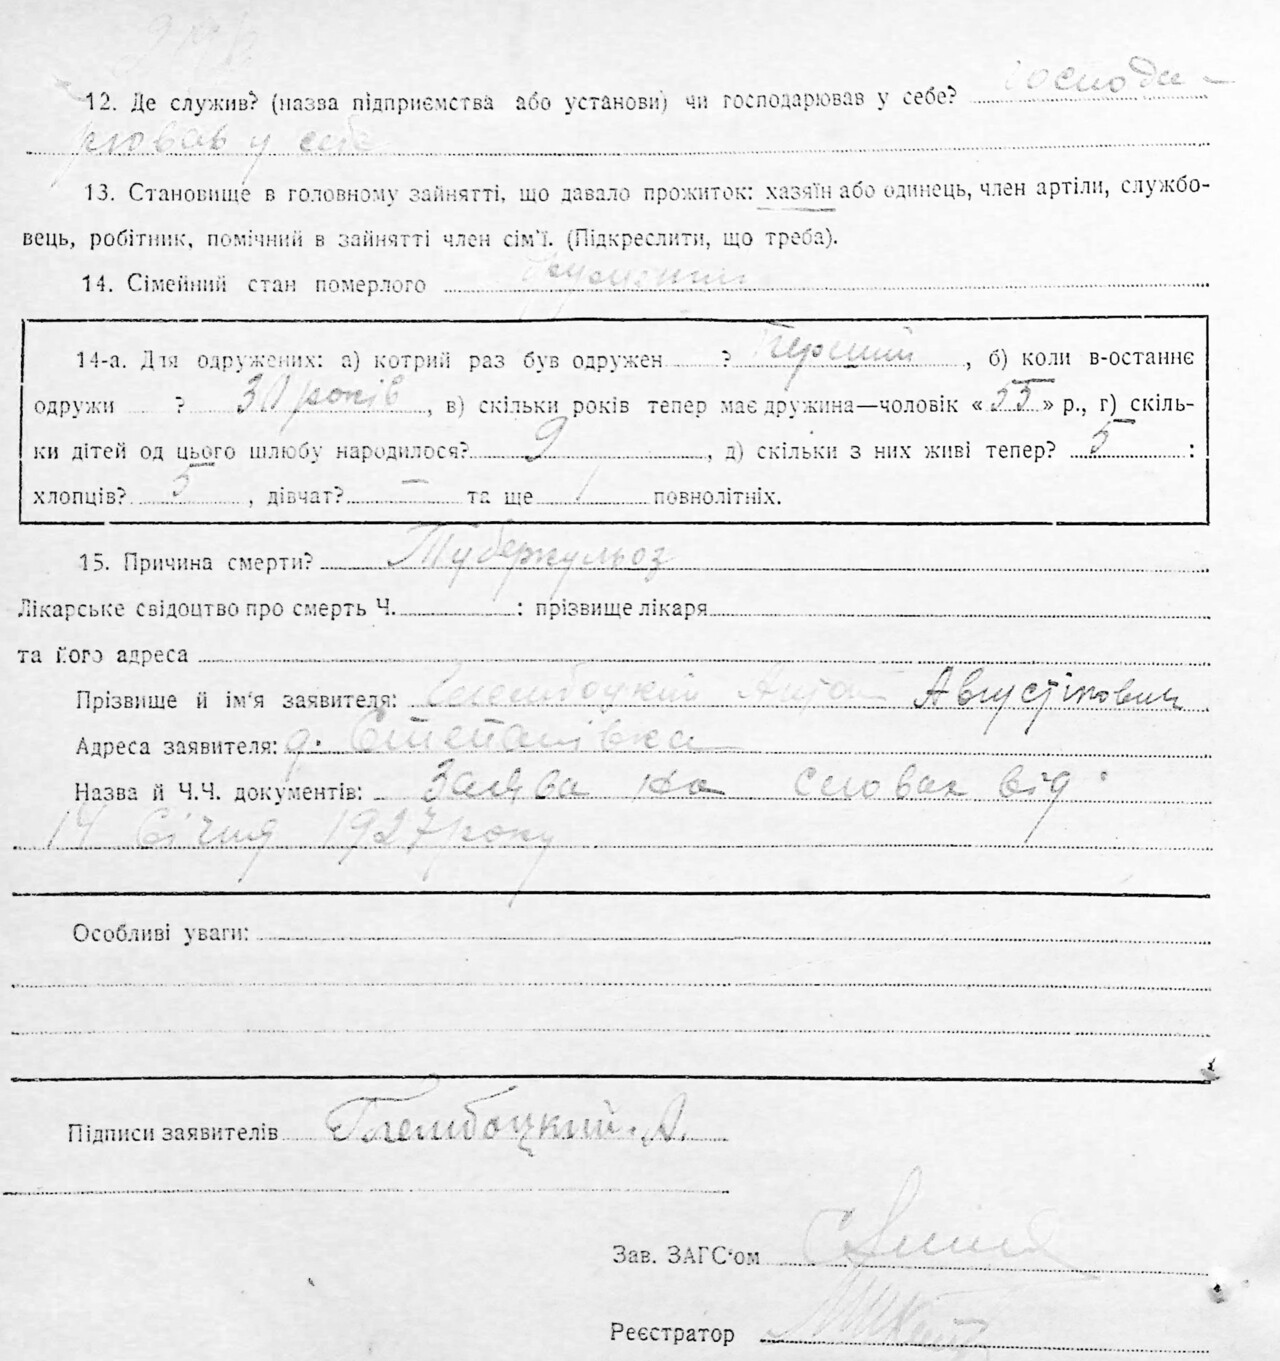 12. Де служив? (назва підприємства або установи) чи господарював у себе? господа-
рював у себе
13. Становище в головному зайнятті, що давало прожиток: хазяїн або одинець, член артіли, службо-
вець, робітник, помічний в зайнятті член сім'ї. (Підкреслити, що треба).
14. Сімейний стан померлого
14-а. Для одружених: а) котрий раз був одружен ? Перший, б) коли в-останнє
одружи ? 30 років, в) скільки років тепер має дружина—чоловік «55» р., г) скіль-
ки дітей од цього шлюбу народилося? 9, д) скільки з них живі тепер? 5 :
хлопців? 5, дівчат? — та ще 1 повнолітніх.
15. Причина смерти? Туберкульоз
Лікарське свідоцтво про смерть Ч. : прізвище лікаря
та його адреса
Прізвище й ім'я заявителя: Глембоцкий Антон Августінович
Адреса заявителя: д. Степанівка
Назва й Ч.Ч. документів: Заява на словах від
14 Січня 1927 року
Особливі уваги:
Підписи заявителів Глембоцкий. А.
Зав. ЗАГС'ом
Реєстратор